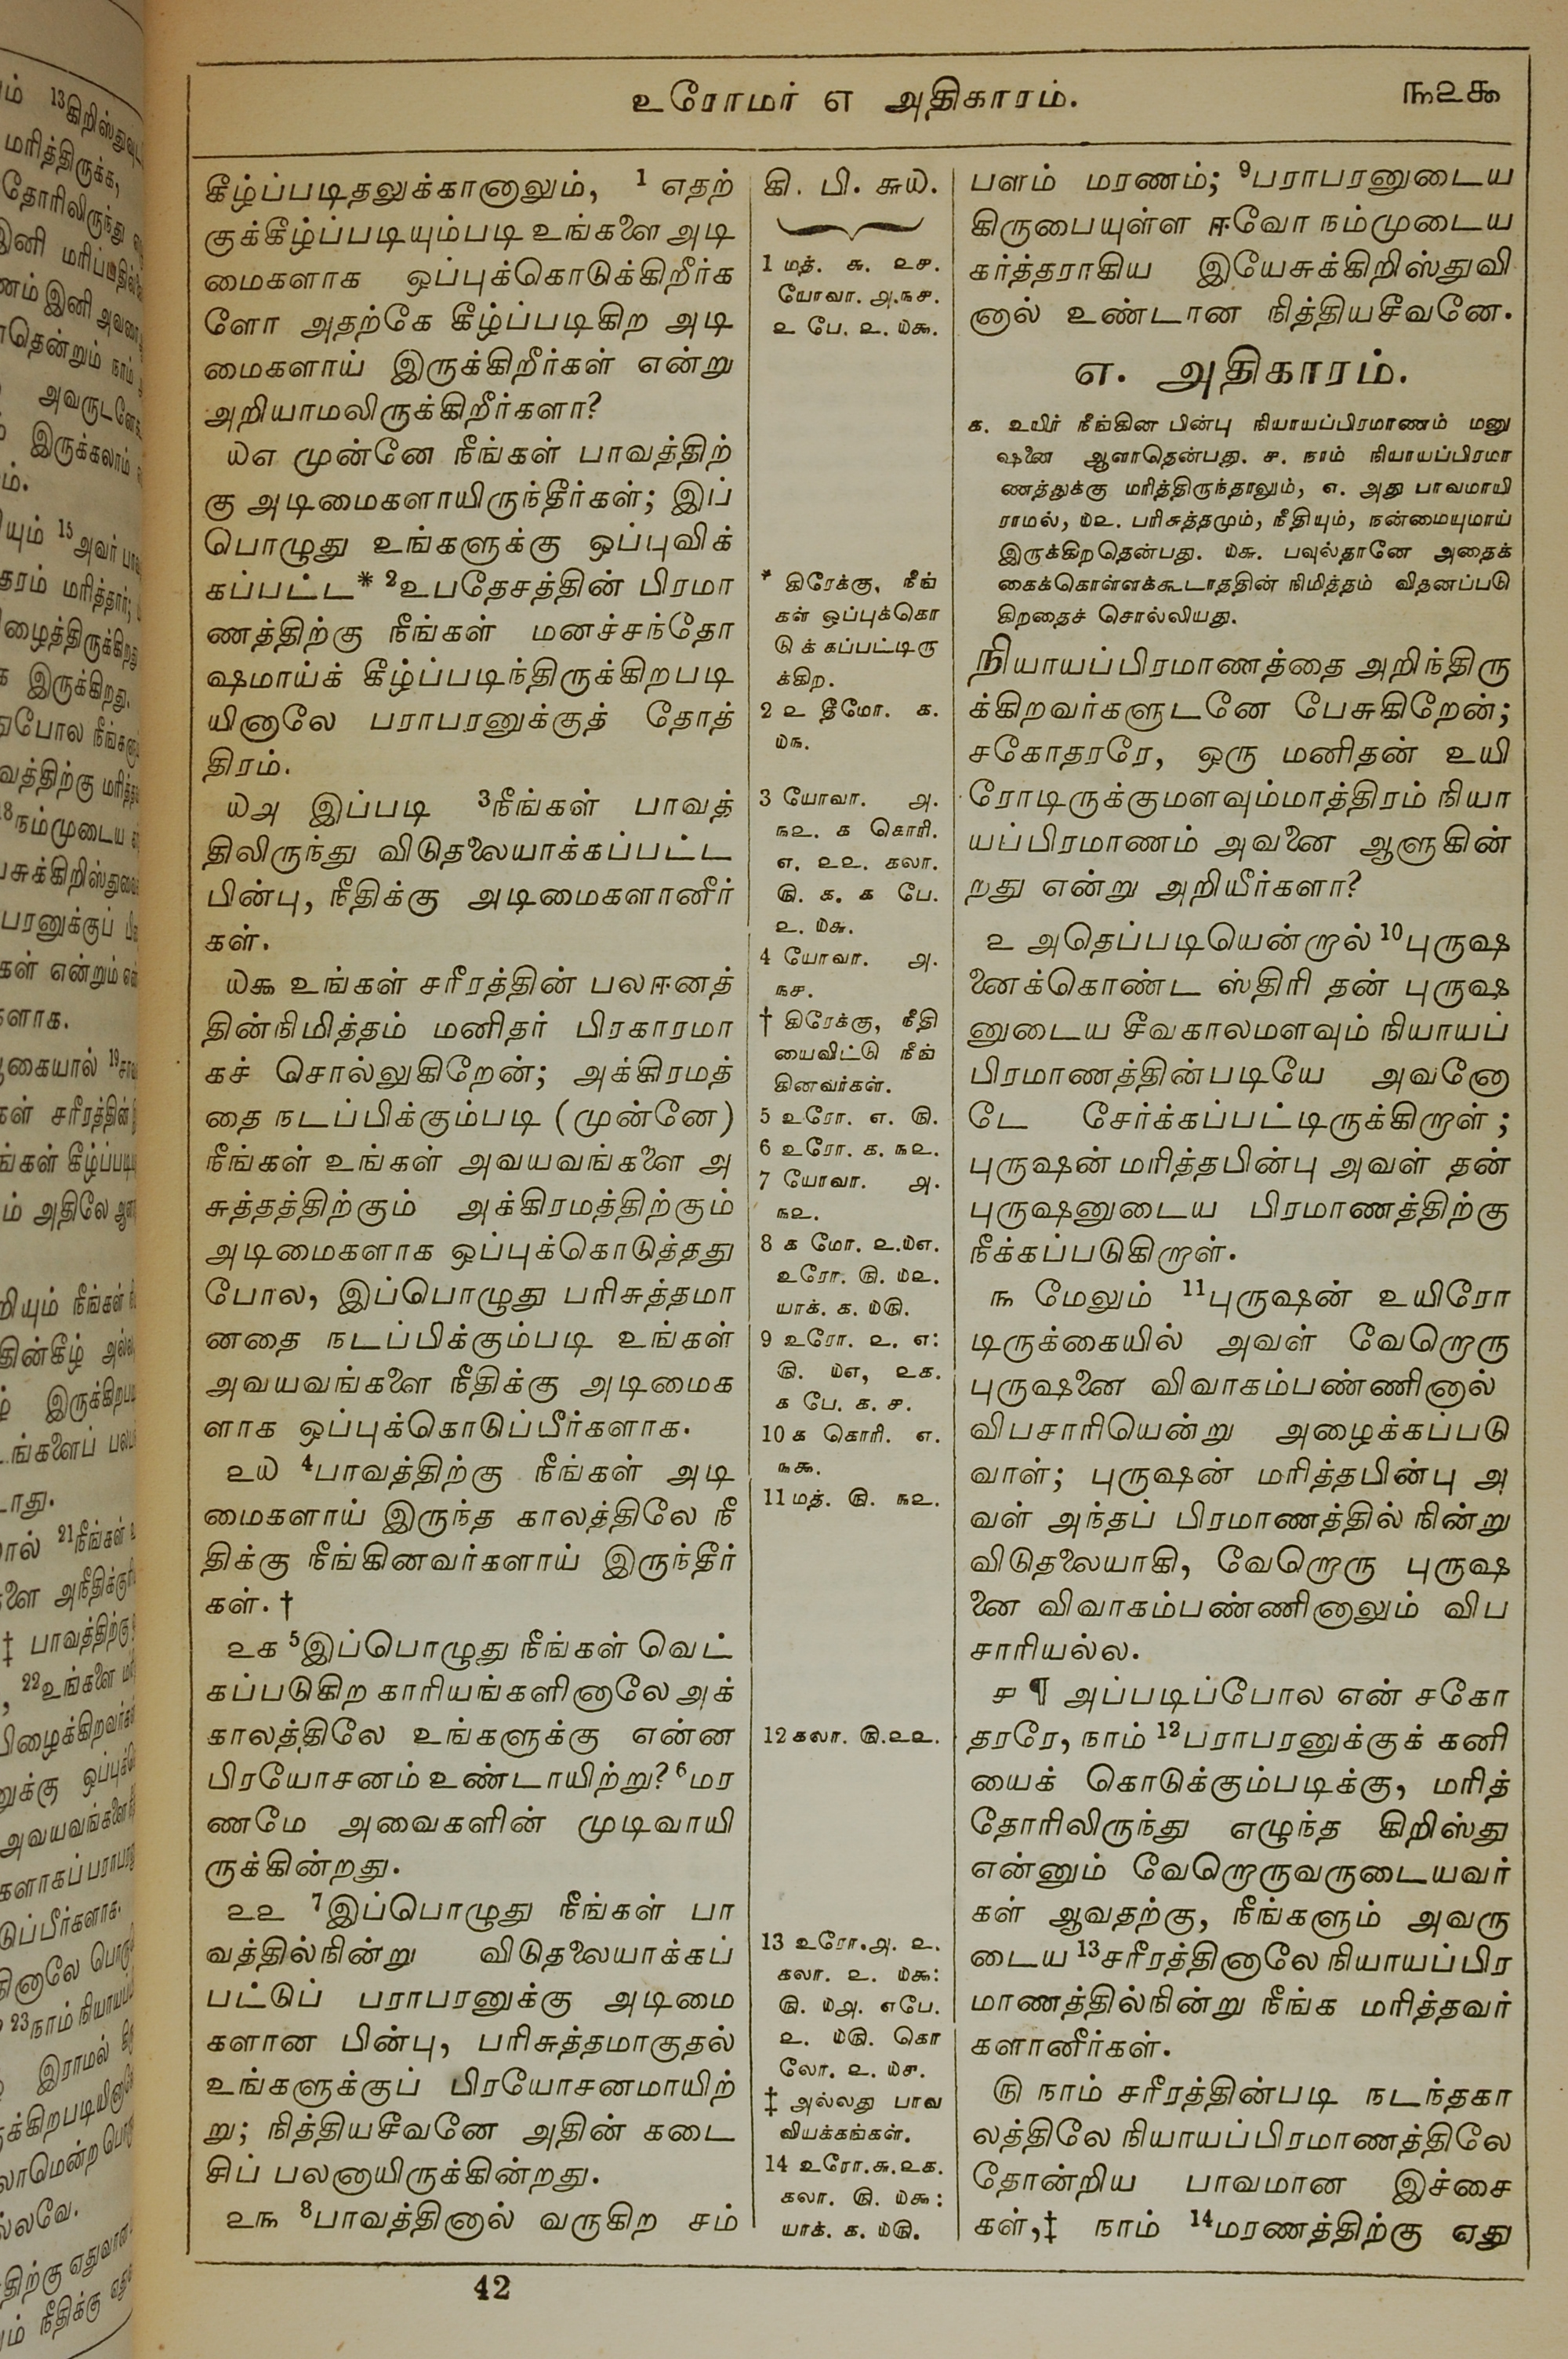 உரோமர் ௭ அதிகாரம்.
௩௨௯
கீழ்ப்படிதலுக்கானாலும், 1 எதற்
குக்கீழ்ப்படியும்படி உங்களை அடி
மைகளாக ஒப்புக்கொடுக்கிறீர்க
ளோ அதற்கே கீழ்ப்படிகிற அடி
மைகளாய் இருக்கிறீர்கள் என்று
அறியாமலிருக்கிறீர்களா?
௰௭ முன்னே நீங்கள் பாவத்திற்
கு அடிமைகளாயிருந்தீர்கள்; இப்
பொழுது உங்களுக்கு ஒப்புவிக்
கப்பட்ட* 2உபதேசத்தின் பிரமா
ணத்திற்கு நீங்கள் மனச்சந்தோ
ஷமாய்க் கீழ்ப்படிந்திருக்கிறபடி
யினாலே பராபரனுக்குத் தோத்
திரம்.
௰௮ இப்படி 3நீங்கள் பாவத்
திலிருந்து விடுதலையாக்கப்பட்ட
பின்பு, நீதிக்கு அடிமைகளானீர்
கள்.
௰௯ உங்கள் சரீரத்தின் பலஈனத்
தின்நிமித்தம் மனிதர் பிரகாரமா
கச் சொல்லுகிறேன்; அக்கிரமத்
தை நடப்பிக்கும்படி (முன்னே)
நீங்கள் உங்கள் அவயவங்களை அ
சுத்தத்திற்கும் அக்கிரமத்திற்கும்
அடிமைகளாக ஒப்புக்கொடுத்தது
போல, இப்பொழுது பரிசுத்தமா
னதை நடப்பிக்கும்படி உங்கள்
அவயவங்களை நீதிக்கு அடிமைக
ளாக ஒப்புக்கொடுப்பீர்களாக.
௨௰ 4பாவத்திற்கு நீங்கள் அடி
மைகளாய் இருந்த காலத்திலே நீ
திக்கு நீங்கினவர்களாய் இருந்தீர்
கள்.†
௨௧ 5இப்பொழுது நீங்கள் வெட்
கப்படுகிற காரியங்களினாலே அக்
காலத்திலே உங்களுக்கு என்ன
பிரயோசனம் உண்டாயிற்று? 6மர
ணமே அவைகளின் முடிவாயி
ருக்கின்றது.
௨௨ 7இப்பொழுது நீங்கள் பா
வத்தில்நின்று விடுதலையாக்கப்
பட்டுப் பராபரனுக்கு அடிமை
களான பின்பு, பரிசுத்தமாகுதல்
உங்களுக்குப் பிரயோசனமாயிற்
று; நித்தியசீவனே அதின் கடை
சிப் பலனாயிருக்கின்றது.
௨௩ 8பாவத்தினால் வருகிற சம்
கி. பி. ௬௰.
1 மத். ௬. ௨௪.
யோவா. ௮.௩௪.
௨ பே. ௨. ௰௯.
* கிரேக்கு, நீங்
கள் ஒப்புக்கொ
டுக்கப்பட்டிரு
க்கிற.
2 ௨ தீமோ. ௧.
௰௩.
3 யோவா. ௮.
௩௨. ௧ கொரி.
௭. ௨௨. கலா.
௫. ௧. ௧ பே.
௨. ௰௬.
4 யோவா. ௮.
௩௪.
† கிரேக்கு, நீதி
யைவிட்டு நீங்
கினவர்கள்.
5 உரோ. ௭. ௫.
6 உரோ. ௧. ௩௨.
7 யோவா. ௮.
௩௨.
8 ௧ மோ. ௨.௰௭.
உரோ. ௫. ௰௨.
யாக். ௧. ௰௫.
9 உரோ. ௨. ௭:
௫. ௰௭, ௨௧.
௧ பே. ௧. ௪.
10 ௧ கொரி. ௭.
௩௯.
11 மத். ௫. ௩௨.
12 கலா. ௫.௨௨.
13 உரோ.௮. ௨.
கலா. ௨. ௰௯:
௫. ௰௮. எபே.
௨. ௰௫. கொ
லோ. ௨. ௰௪.
‡ அல்லது பாவ
வியக்கங்கள்.
14 உரோ.௬.௨௧.
கலா. ௫. ௰௯:
யாக். ௧. ௰௫.
பளம் மரணம்; 9பராபரனுடைய
கிருபையுள்ள ஈவோ நம்முடைய
கர்த்தராகிய இயேசுக்கிறிஸ்துவி
னால் உண்டான நித்தியசீவனே.
௭. அதிகாரம்.
௧. உயிர் நீங்கின பின்பு நியாயப்பிரமாணம் மனு
ஷனை ஆளாதென்பது. ௪. நாம் நியாயப்பிரமா
ணத்துக்கு மரித்திருந்தாலும், ௭. அது பாவமாயி
ராமல், ௰௨. பரிசுத்தமும், நீதியும், நன்மையுமாய்
இருக்கிறதென்பது. ௰௬. பவுல்தானே அதைக்
கைக்கொள்ளக்கூடாததின் நிமித்தம் விதனப்படு
கிறதைச் சொல்லியது.
நியாயப்பிரமாணத்தை அறிந்திரு
க்கிறவர்களுடனே பேசுகிறேன்;
சகோதரரே, ஒரு மனிதன் உயி
ரோடிருக்குமளவும்மாத்திரம் நியா
யப்பிரமாணம் அவனை ஆளுகின்
றது என்று அறியீர்களா?
௨ அதெப்படியென்றால் 10புருஷ
னைக்கொண்ட ஸ்திரி தன் புருஷ
னுடைய சீவகாலமளவும் நியாயப்
பிரமாணத்தின்படியே அவனோ
டே சேர்க்கப்பட்டிருக்கிறாள்;
புருஷன் மரித்தபின்பு அவள் தன்
புருஷனுடைய பிரமாணத்திற்கு
நீக்கப்படுகிறாள்.
௩ மேலும் 11புருஷன் உயிரோ
டிருக்கையில் அவள் வேறொரு
புருஷனை விவாகம்பண்ணினால்
விபசாரியென்று அழைக்கப்படு
வாள்; புருஷன் மரித்தபின்பு அ
வள் அந்தப் பிரமாணத்தில் நின்று
விடுதலையாகி, வேறொரு புருஷ
னை விவாகம்பண்ணினாலும் விப
சாரியல்ல.
௪ ¶ அப்படிப்போல என் சகோ
தரரே, நாம் 12பராபரனுக்குக் கனி
யைக் கொடுக்கும்படிக்கு, மரித்
தோரிலிருந்து எழுந்த கிறிஸ்து
என்னும் வேறொருவருடையவர்
கள் ஆவதற்கு, நீங்களும் அவரு
டைய 13சரீரத்தினாலே நியாயப்பிர
மாணத்தில்நின்று நீங்க மரித்தவர்
களானீர்கள்.
௫ நாம் சரீரத்தின்படி நடந்தகா
லத்திலே நியாயப்பிரமாணத்திலே
தோன்றிய பாவமான இச்சை
கள்,‡ நாம் 14மரணத்திற்கு ஏது
42